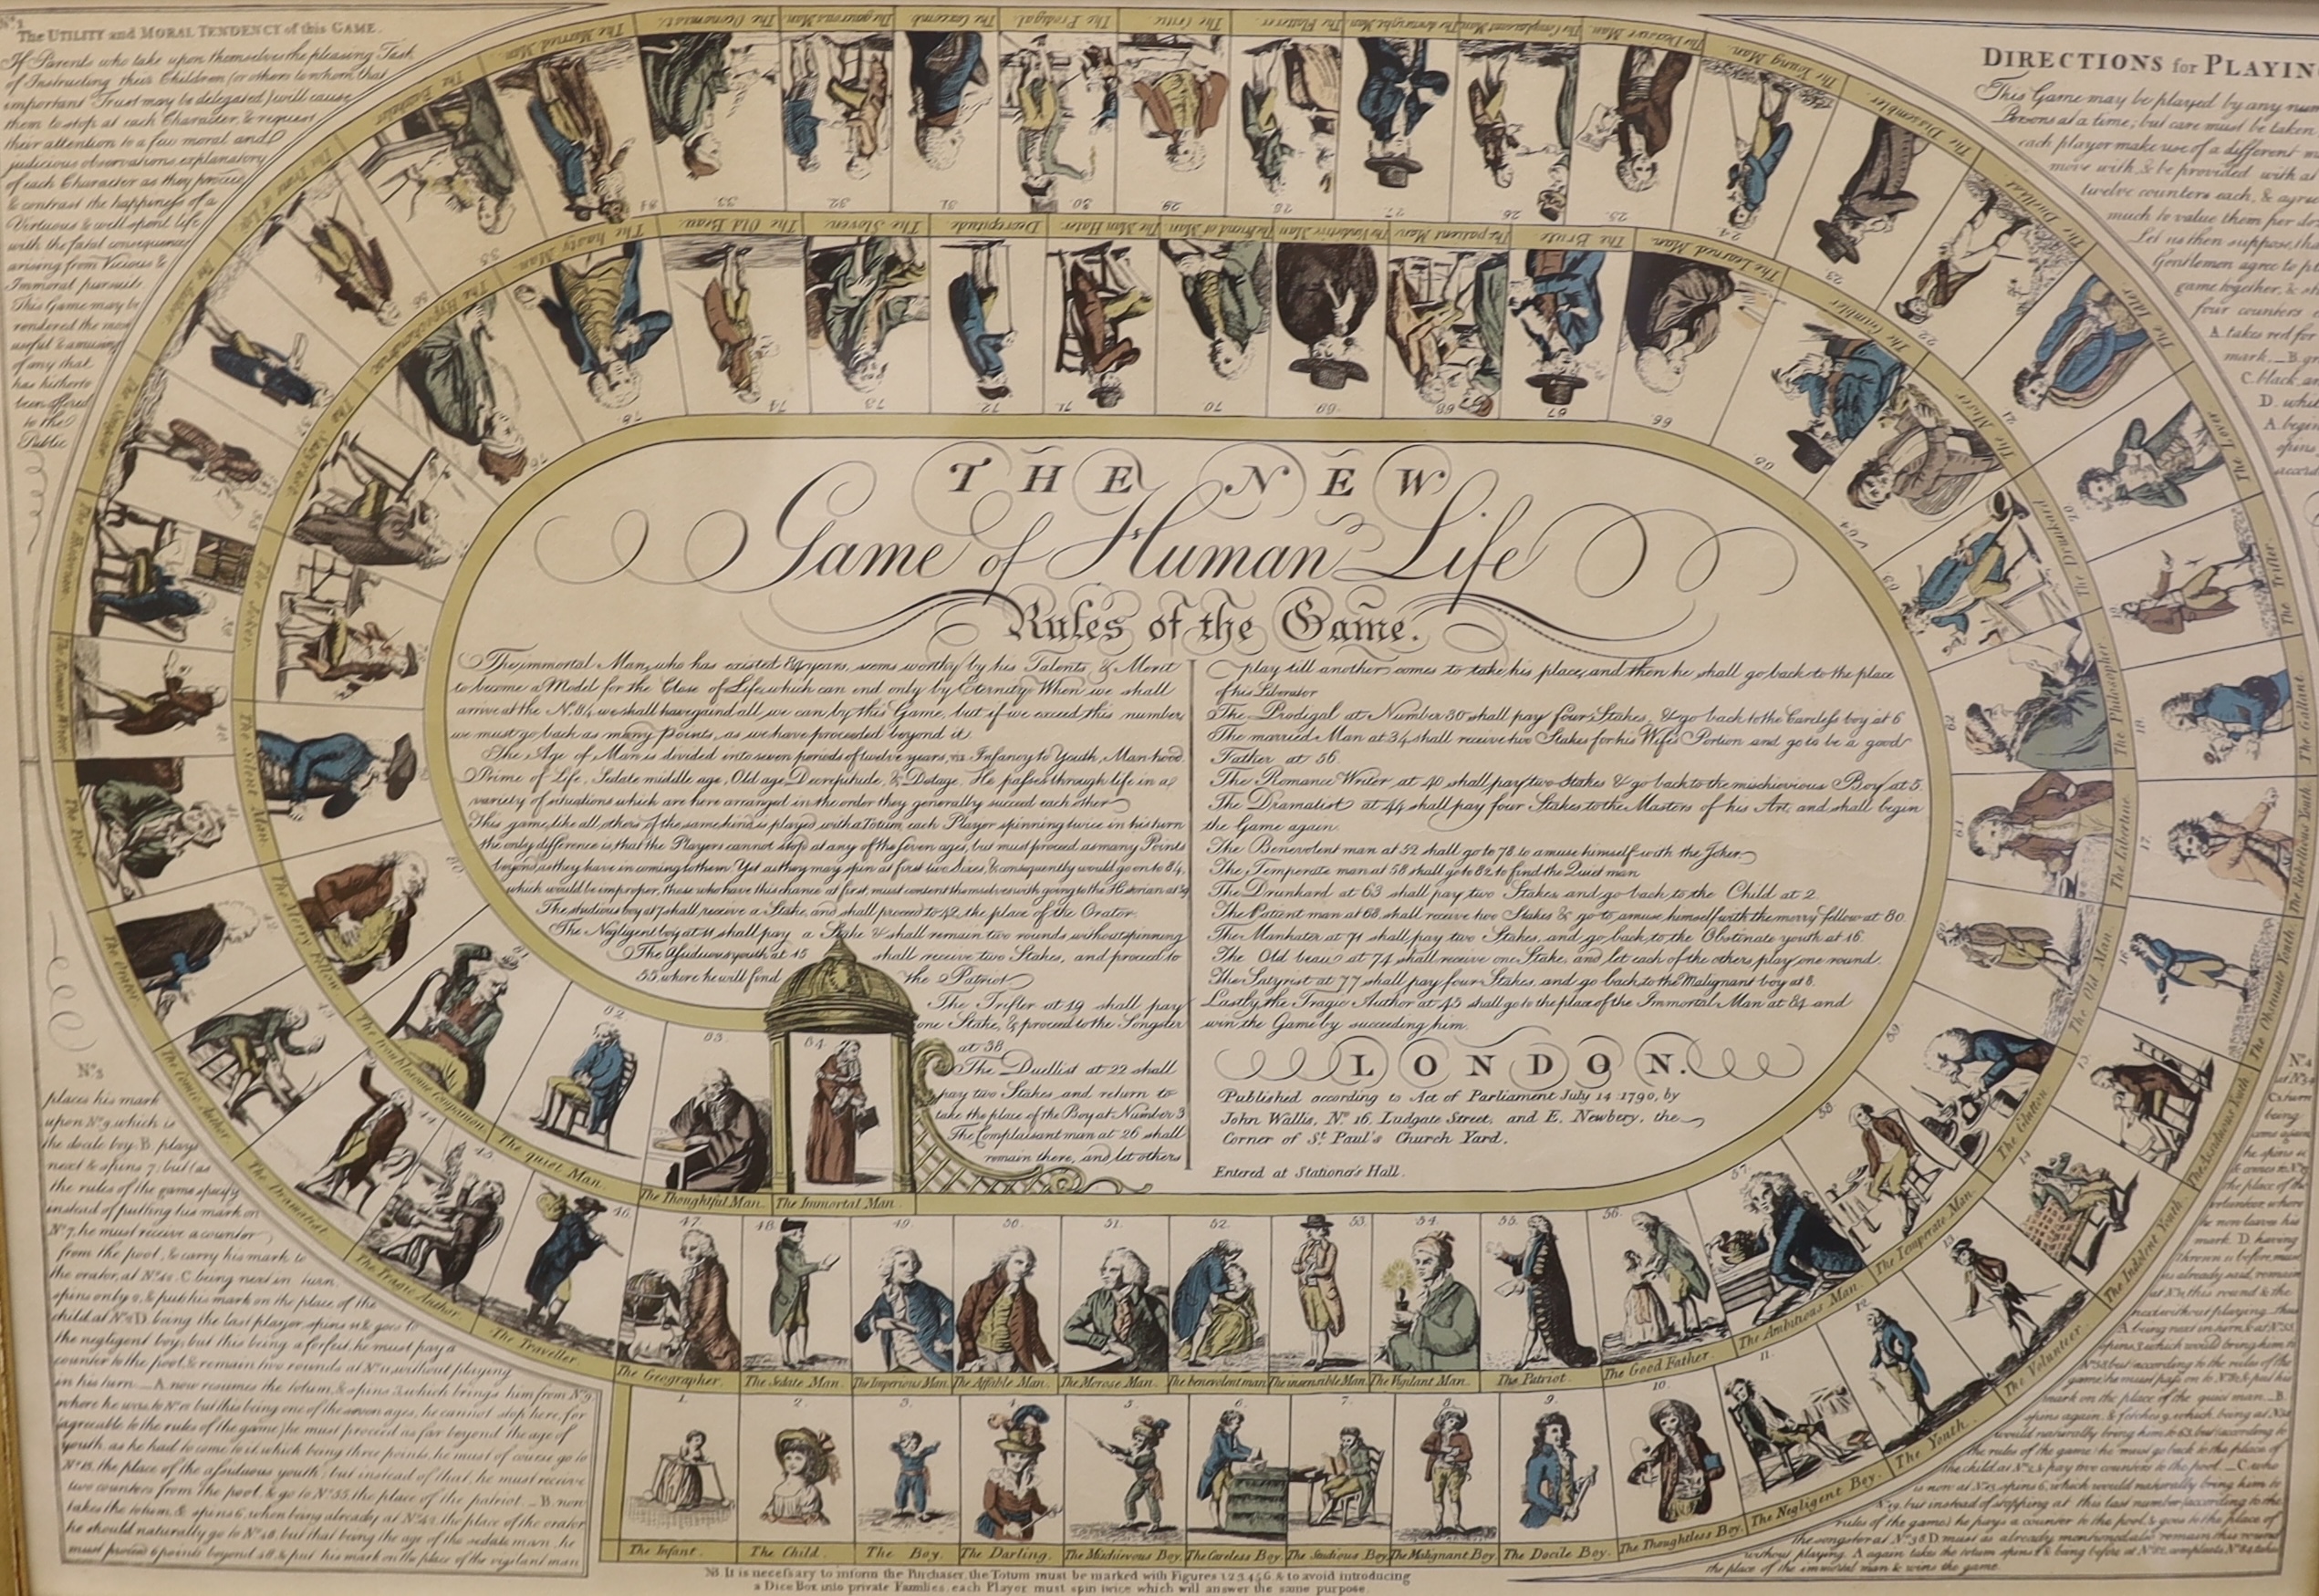 THE NEW
Game of Human Life
Rules of the Game.
The immortal Man, who has existed 84 years, seems worthy by his Talents & Merit
to become a Model for the Close of Life, which can end only by Eternity. When we shall
arrive at the No. 84, we shall have gain'd all we can by this Game, but if we exceed this number
we must go back as many Points, as we have proceeded beyond it.
The Age of Man is divided into seven periods of twelve years, viz Infancy to Youth, Manhood
Prime of Life, Sedate middle age, Old age, Decrepitude, & Dotage. He passes through life in a
variety of situations which are here arranged in the order they generally succeed each other
This game, like all others of the same kind is played with a Totum, each Player spinning twice in his turn
the only difference is, that the Players cannot stop at any of the seven ages, but must proceed as many Points
beyond, as they have in coming to them. Yet as they may spin at first two Sixes, & consequently would go on to 84,
which would be improper, those who have this chance at first, must content themselves with going to the Historian at 39
The studious boy at 7 shall receive a Stake, and shall proceed to 42, the place of the Orator.
The Negligent boy at 11 shall pay a Stake & shall remain two rounds without spinning
The Assiduous youth at 15 shall receive two Stakes, and proceed to
55 where he will find the Patriot
The Trifler at 19 shall pay
one Stake, & proceed to the Songster
at 38
The Duellist at 22 shall
pay two Stakes and return to
take the place of the Boy at Number 3
The Complaisant man at 26 shall
remain there, and let others
play till another comes to take his place, and then he shall go back to the place
of his Liberator
The Prodigal at Number 30 shall pay four Stakes, & go back to the Careless boy at 6
The married Man at 34 shall receive two Stakes for his Wife's Portion and go to be a good
Father at 56.
The Romance Writer at 40 shall pay two Stakes & go back to the mischievious Boy at 5.
The Dramatist at 44 shall pay four Stakes to the Masters of his Art, and shall begin
the Game again.
The Benevolent man at 52 shall go to 78, to amuse himself with the Joker.
The Temperate man at 58 shall go to 82 to find the Quiet man
The Drunkard at 63 shall pay two Stakes, and go back to the Child at 2.
The Patient man at 68 shall receive two Stakes & go to amuse himself with the merry fellow at 80.
The Manhater at 71 shall pay two Stakes, and go back to the Obstinate youth at 16.
The Old beau at 74 shall receive one Stake, and let each of the others play one round.
The Satyrist at 77 shall pay four Stakes, and go back to the Malignant boy at 8.
Lastly, the Tragic Author at 45 shall go to the place of the Immortal Man at 84 and
win the Game by succeeding him.
LONDON.
Published according to Act of Parliament July 14 1790, by
John Wallis, No. 16, Ludgate Street, and E. Newbery, the
Corner of St. Paul's Church Yard.
Entered at Stationer's Hall.
No. 1
The UTILITY and MORAL TENDENCY of this GAME.
If Parents who take upon themselves the pleasing Task
of Instructing their Children (or others to whom that
important Trust may be delegated) will cause
them to stop at each Character, & request
their attention to a few moral and
judicious observations, explanatory
of each Character as they proceed
& contrast the happiness of a
Virtuous & well spent life
with the fatal consequences
arising from Vicious &
Immoral pursuits
This Game may be
rendered the most
useful & amusing
of any that
has hitherto
been offered
to the
Public
DIRECTIONS for PLAYIN
This Game may be played by any num
Persons at a time; but care must be taken
each player make use of a different m
move with, & be provided with at
twelve counters each, & agree
much to value them per do
Let us then suppose, tha
Gentlemen agree to pl
game together, & st
four counters
A. takes red for
mark. B. gr
C. black, an
D. whit
A. begin
spins
accord
No. 3
places his mark
upon No. 9, which is
the docile boy. B. plays
next & spins 7; but (as
the rules of the game specify)
instead of putting his mark on
No. 7, he must receive a counter
from the pool, & carry his mark to
the orator, at No. 42. C. being next in turn,
spins only 2, & puts his mark on the place of the
child, at No. 2. D. being the last player, spins 11 & goes to
the negligent boy; but this being a forfeit, he must pay a
counter to the pool, & remain two rounds at No. 11 without playing
in his turn. A. now resumes the totum, & spins 3, which brings him from No. 9,
where he was, to No. 12, but this being one of the seven ages, he cannot stop here, for
(agreeable to the rules of the game) he must proceed as far beyond the age of
youth, as he had to come to it, which being three points, he must of course go to
No. 15, the place of the assiduous youth; but instead of that, he must receive
two counters from the pool, & go to No. 55, the place of the patriot. B. now
takes the totum, & spins 6, when being already at No. 42, the place of the orator
he should naturally go to No. 48, but that being the age of the sedate man, he
must proceed 6 points beyond 48, & put his mark on the place of the vigilant man
No. 4
child at No. 2 & pay two counters to the pool. C. who
is now at No. 13 spins 6, which would naturally bring him to
No. 19, but instead of stopping at this last number (according to the
rules of the game) he pays a counter to the pool, & goes to the place of
the songster at No. 38. D. must as already mentioned also remain this round
without playing. A. again takes the totum spins & being before at No. 82, completes No. 84, takes
the place of the immortal man & wins the game.
1. The Infant.
2. The Child.
3. The Boy.
4. The Darling.
5. The Mischievous Boy.
6. The Careless Boy.
7. The Studious Boy.
8. The Malignant Boy.
9. The Docile Boy.
10. The Thoughtless Boy.
11. The Negligent Boy.
12. The Youth.
13. The Volunteer.
14. The Indolent Youth.
15. The Assiduous Youth.
16. The Obstinate Youth.
17. The Rebellious Youth.
18. The Gallant.
19. The Trifler.
20. The Lover.
21. The Idler.
22. The Duellist.
23. The Dissembler.
24. The Young Man.
25. The Dissolute Man.
26. The Complaisant Man.
27. The downright Man.
28. The Flatterer.
29. The Critic.
30. The Prodigal.
31. The Coxcomb.
32. The generous Man.
33. The Oeconomist.
34. The Married Man.
35. The Batchelor.
36. The Prime of Life.
37.
38. The Songster.
39. The Historian.
40. The Romance Writer.
41. The Poet.
42. The Orator.
43. The Comic Author.
44. The Dramatist.
45. The Tragic Author.
46. The Traveller.
47. The Geographer.
48. The Sedate Man.
49. The Imperious Man.
50. The Affable Man.
51. The Morose Man.
52. The benevolent man.
53. The insensible Man.
54. The Vigilant Man.
55. The Patriot.
56. The Good Father.
57. The Ambitious Man.
58. The Temperate Man.
59. The Glutton.
60. The Old Man.
61. The Libertine.
62. The Philosopher.
63. The Drunkard.
64. The Miser.
65. The Grumbler.
66. The Learned Man.
67. The Brute.
68. The patient Man.
69. The Vindictive Man.
70. The Friend of Man.
71. The Man Hater.
72. Decrepitude.
73. The Sloven.
74. The Old Beau.
75. The hasty Man.
76. The Hypochondriac.
77. The Satyrist.
78. The Joker.
79. The Silent Man.
80. The Merry Fellow.
81. The troublesome Companion.
82. The quiet Man.
83. The Thoughtful Man.
84. The Immortal Man.
NB. It is necessary to inform the Purchaser, the Totum must be marked with Figures 1 2 3 4 5 6 & to avoid introducing
a Dice Box into private Families, each Player must spin twice which will answer the same purpose.